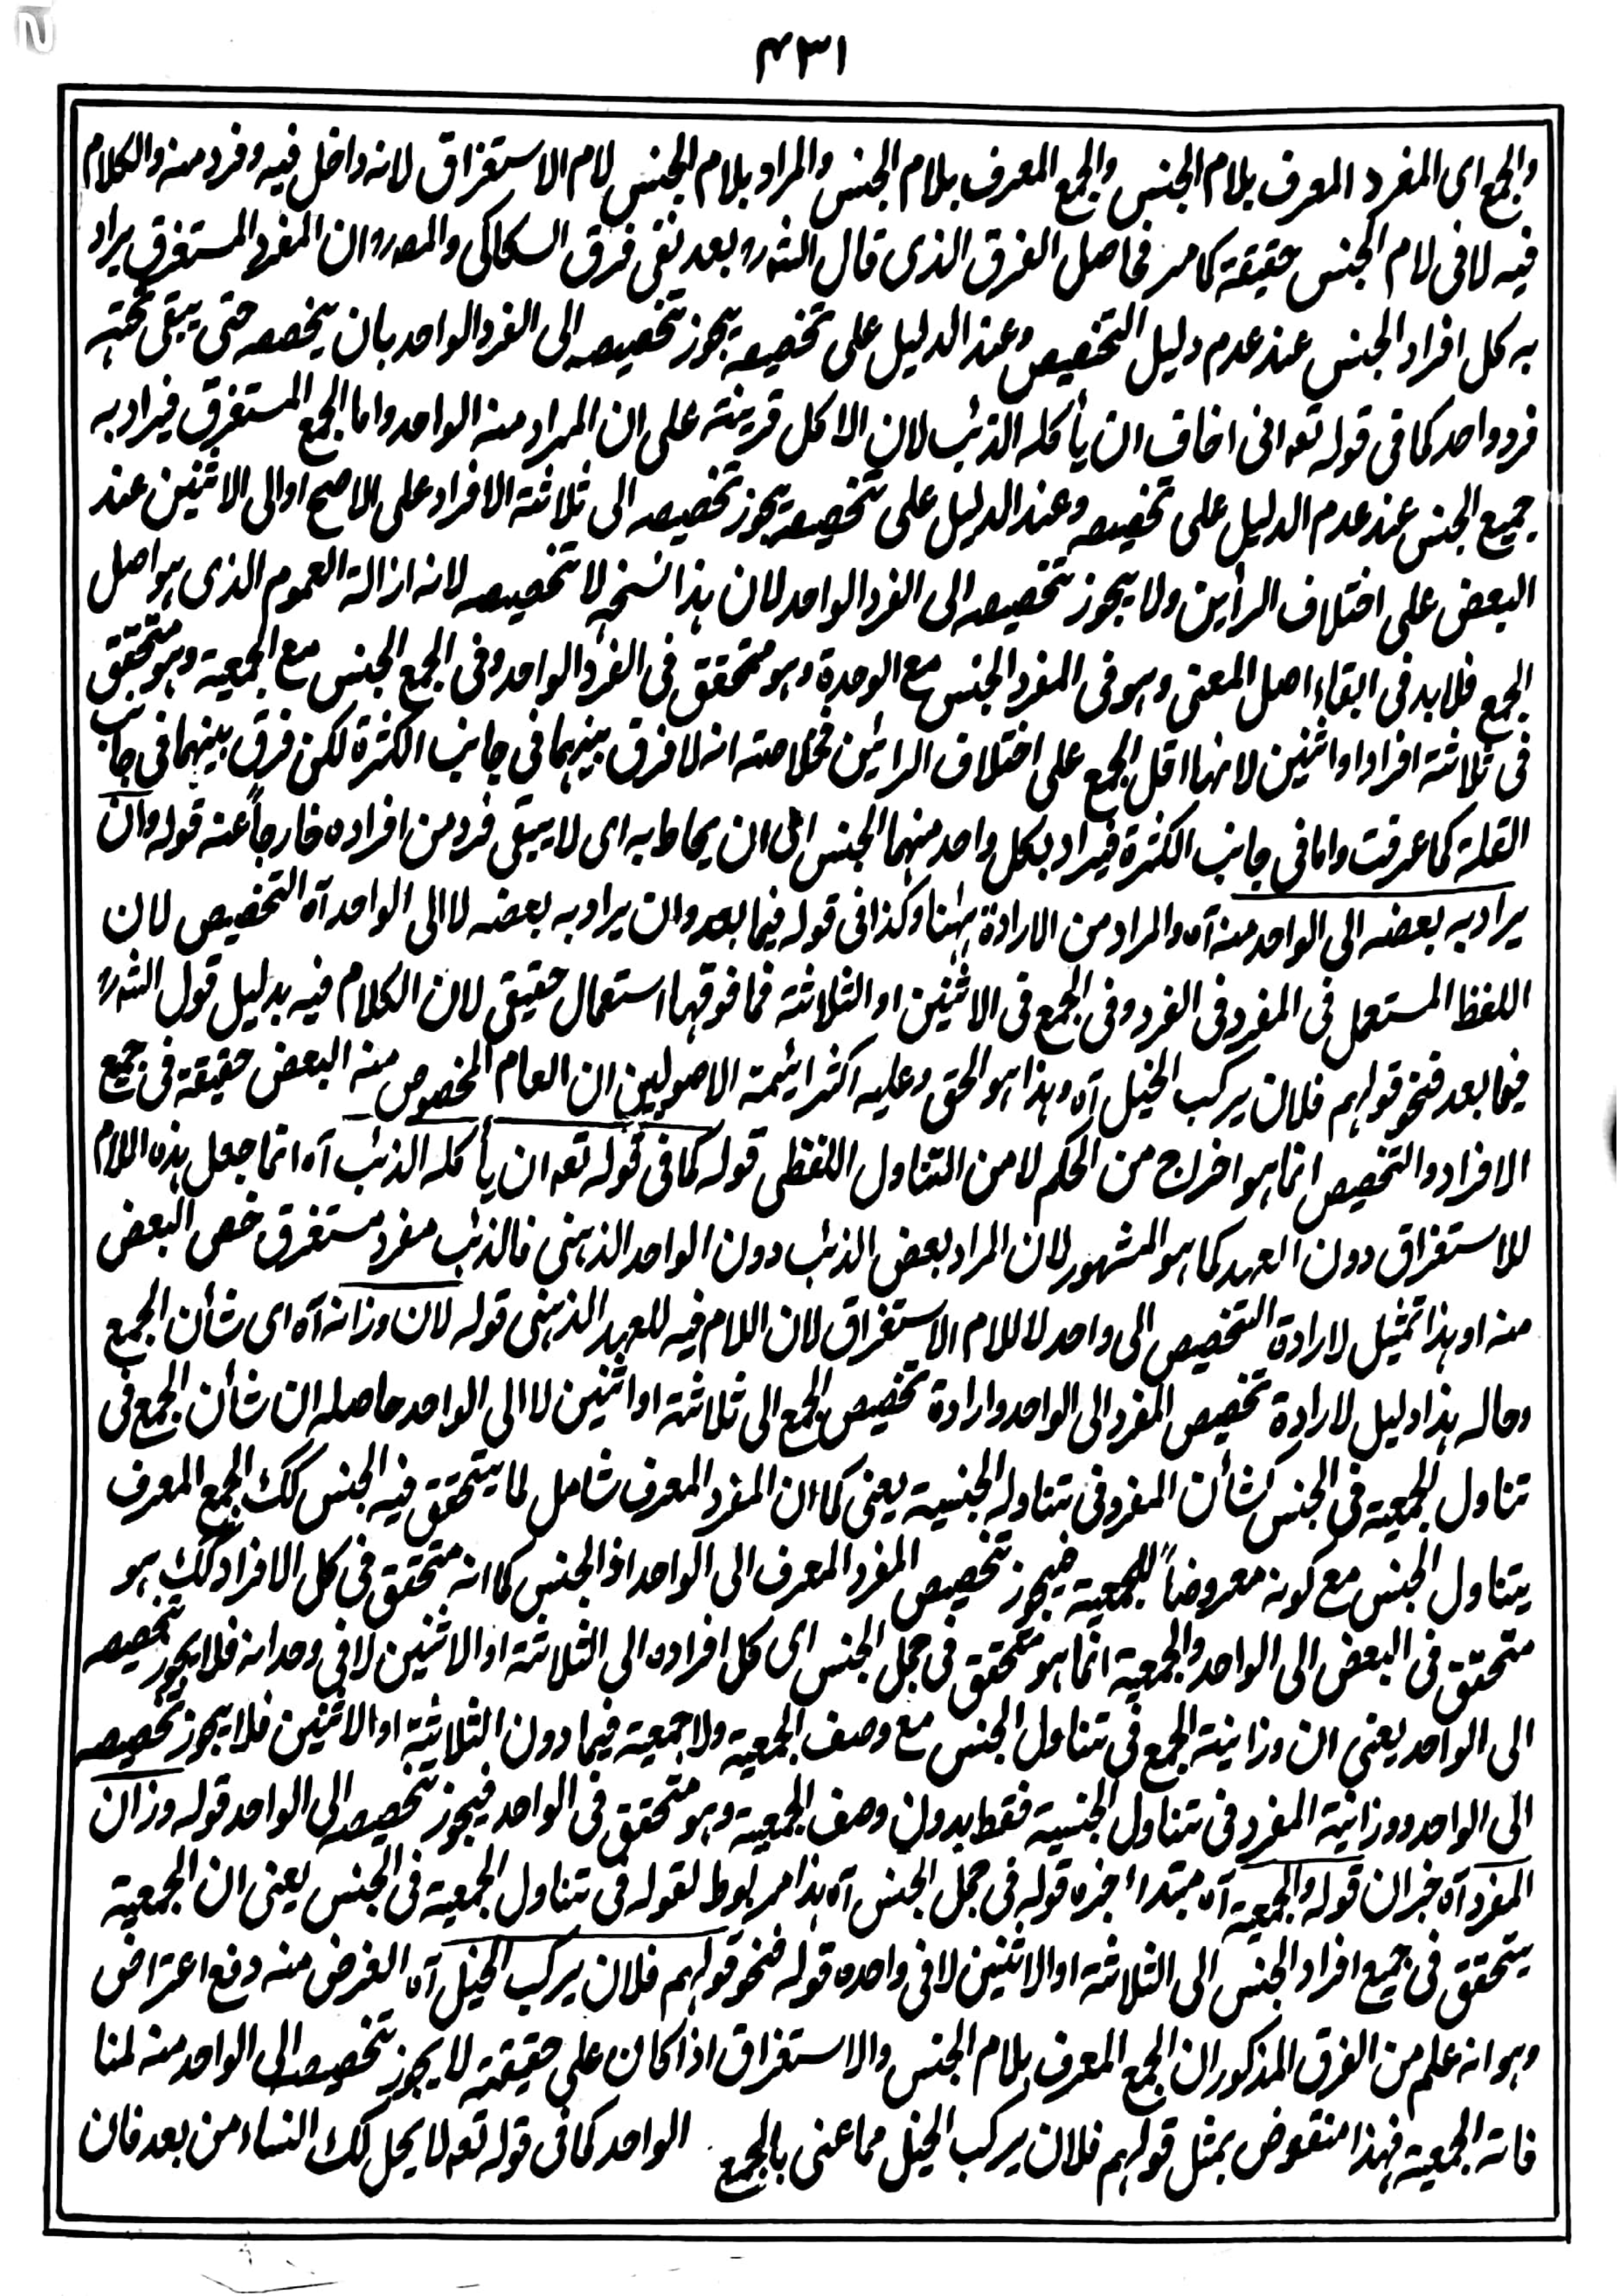 ۴۳۱
والجمع ای المفرد المعرف بلام الجنس والجمع المعرف بلام الجنس والمراد بلام الجنس لام الاستغراق لانه داخل فیه وفرد منه والکلام
فیه لا فی لام الجنس حقیقة کما مر فحاصل الفرق الذی قال الشهر بعد نفی فرق السکاکی والمصر وان المفرد المستغرق یراد
به کل افراد الجنس عند عدم دلیل التخصیص وعند الدلیل علی تخصیصه یجوز تخصیصه الی الفرد الواحد بان یخصصه حتی یبقی تحته
فرد واحد کما فی قوله تعه انی اخاف ان یأکله الذئب لان الاکل قرینة علی ان المراد منه الواحد واما الجمع المستغرق فیراد به
جمیع الجنس عند عدم الدلیل علی تخصیصه وعند الدلیل علی تخصیصه یجوز تخصیصه الی ثلاثة الافراد علی الاصح او الی الاثنین عند
البعض علی اختلاف الرأین ولا یجوز تخصیصه الی الفرد الواحد لان هذا نسخه لا تخصیصه لانه ازالة العموم الذی هو اصل
الجمع فلا بد فی ابقاء اصل المعنی وهو فی المفرد الجنس مع الوحدة وهو متحقق فی الفرد الواحد وفی الجمع الجنس مع الجمعیة وهو متحقق
فی ثلاثة افراد او اثنین لانهما اقل الجمع علی اختلاف الرائین فخلاصته انه لا فرق بینهما فی جانب الکثرة لکن فرق بینهما فی جانب
القلة کما عرفت واما فی جانب الکثرة فیراد بکل واحد منهما الجنس الی ان یحاط به ای لا یبقی فرد من افراده خارجاً عنه قوله وان
یراد به بعضه الی الواحد منه آه والمراد من الارادة ههنا وکذا فی قوله فیما بعد وان یراد به بعضه لا الی الواحد آه التخصیص لان
اللفظ المستعمل فی المفرد فی الفرد وفی الجمع فی الاثنین او الثلاثة فما فوقها استعمال حقیقی لان الکلام فیه بدلیل قول الشهر
فیما بعد فنحو قولهم فلان یرکب الخیل آه وهذا هو الحق وعلیه اکثر ائمة الاصولیین ان العام المخصوص منه البعض حقیقة فی جمیع
الافراد والتخصیص انما هو اخراج من الحکم لا من التناول اللفظی قوله کما فی قوله تعه ان یأکله الذئب آه انما جعل هذه اللام
للاستغراق دون العهد کما هو المشهور لان المراد بعض الذئب دون الواحد الذهنی فالذئب مفرد مستغرق خص البعض
منه او هذا تمثیل لارادة التخصیص الی واحد لا للام الاستغراق لان اللام فیه للعهد الذهنی قوله لان وزانه آه ای شأن الجمع
وحاله هذا دلیل لارادة تخصیص المفرد الی الواحد وارادة تخصیص الجمع الی ثلاثة او اثنین لا الی الواحد حاصله ان شأن الجمع فی
تناول الجمعیة فی الجنس کشأن المفرد فی تناوله الجنسیة یعنی کما ان المفرد المعرف شامل لما یتحقق فیه الجنس کک الجمع المعرف
یتناول الجنس مع کونه معروضاً للجمعیة فیجوز تخصیص المفرد المعرف الی الواحد اذ الجنس کما انه متحقق فی کل الافراد کک هو
متحقق فی البعض الی الواحد والجمعیة انما هو متحقق فی جمل الجنس ای کل افراده الی الثلاثة او الاثنین لا فی وحدانه فلا یجوز تخصیصه
الی الواحد یعنی ان وزانیة الجمع فی تناول الجنس مع وصف الجمعیة ولا جمعیة فیما دون الثلاثة او الاثنین فلا یجوز تخصیصه
الی الواحد ووزانیة المفرد فی تناول الجنسیة فقط بدون وصف الجمعیة وهو متحقق فی الواحد فیجوز تخصیصه الی الواحد قوله وزان
المفرد آه خبر ان قوله والجمعیة آه مبتداء خبره قوله فی جمل الجنس آه هذا مربوط لقوله فی تناول الجمعیة فی الجنس یعنی ان الجمعیة
یتحقق فی جمیع افراد الجنس الی الثلاثة او الاثنین لا فی واحده قوله فنحو قولهم فلان یرکب الخیل آه الغرض منه دفع اعتراض
وهو انه علم من الفرق المذکور ان الجمع المعرف بلام الجنس والاستغراق اذا کان علی حقیقته لا یجوز تخصیصه الی الواحد منه لمنا
فاته الجمعیة فهذا منقوض بمثل قولهم فلان یرکب الخیل مما عنی بالجمع الواحد کما فی قوله تعه لا یحل لک النساء من بعد فان